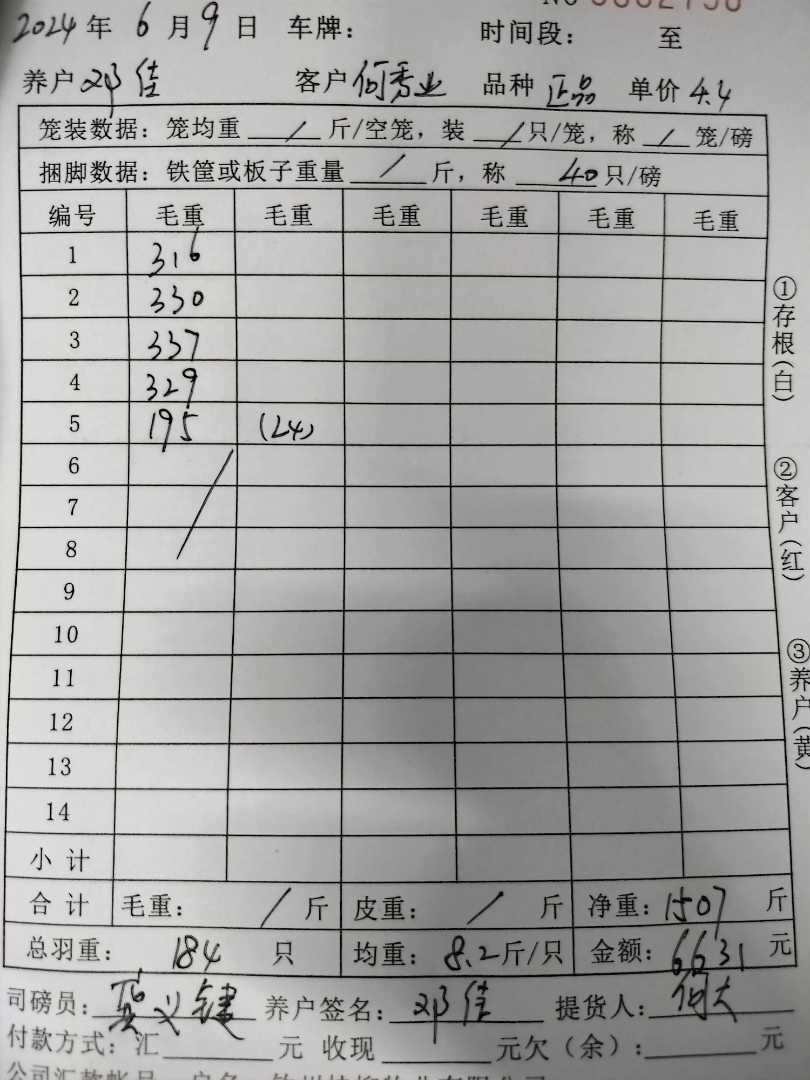 2024年 6月9日 车牌： 时间段： 至
养户 邓佳 客户 何秀业 品种 正品 单价 4.4
笼装数据：笼均重 / 斤/空笼，装 / 只/笼，称 / 笼/磅
捆脚数据：铁筐或板子重量 / 斤，称 40 只/磅
编号 毛重 毛重 毛重 毛重 毛重 毛重
1 316
2 330
3 337
4 329
5 195 (24)
6
7
8
9
10
11
12
13
14
小计
合计 毛重： / 斤 皮重： / 斤 净重：1507 斤
总羽重： 184 只 均重： 8.2斤/只 金额： 6631 元
司磅员： 义键 养户签名： 邓佳 提货人： 何大
付款方式：汇 元 收现 元欠（余）： 元
①存根(白)
②客户(红)
③养户(黄)